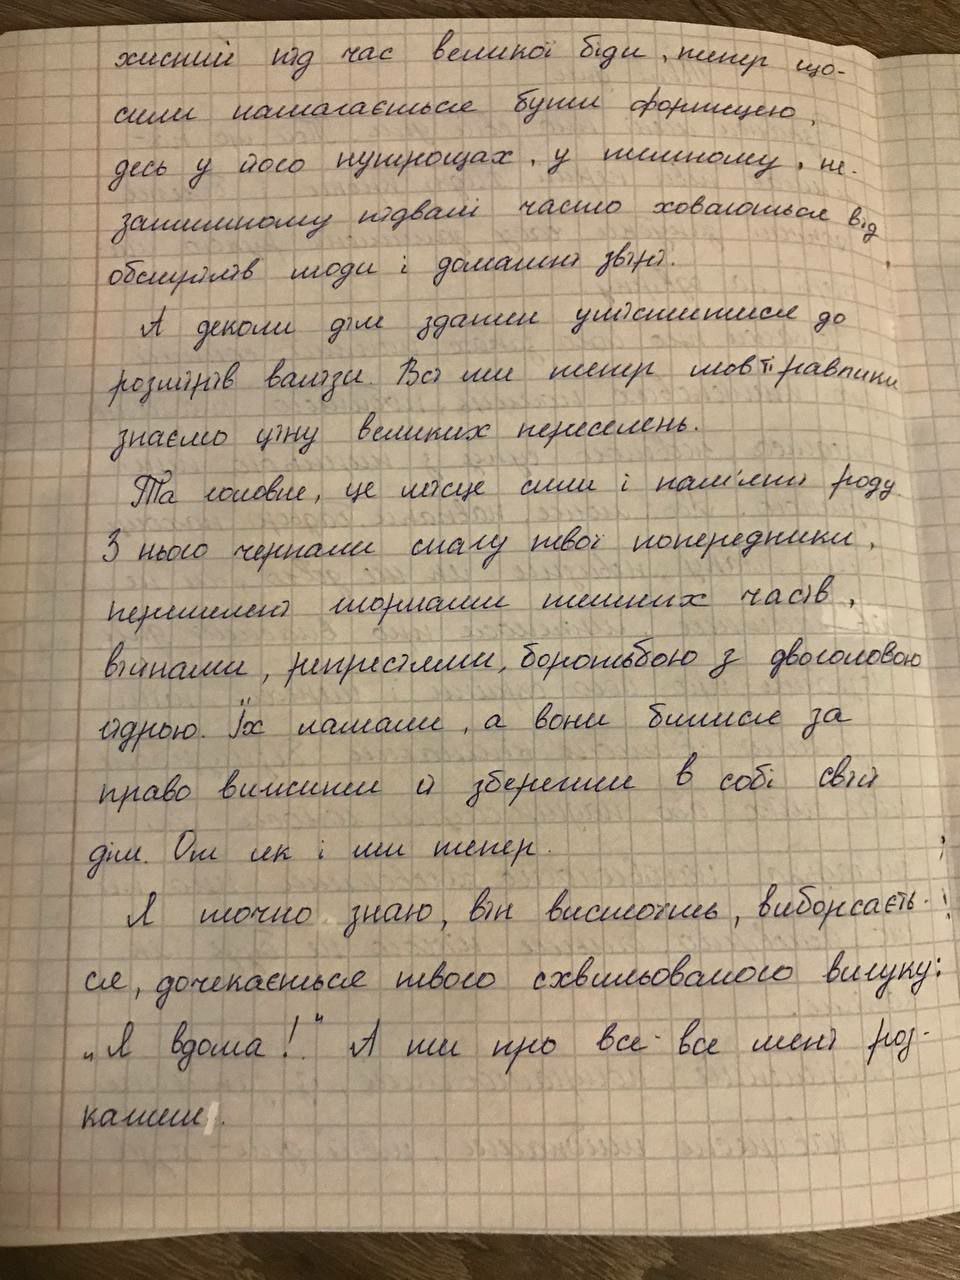 хисний під час великої біди, тепер що-
сили намагається бути фортецею,
десь у його нутрощах, у темному, не-
затишному підвалі часто ховаються від
обстрілів люди і домашні звірі.
А деколи дім здатен уміститися до
розмірів валізи. Всі ми тепер мов ті равлики
знаємо ціну великих переселень.
Та головне, це місце сили і пам'яті роду.
З нього черпали снагу твої попередники,
перемелені жорнами темних часів,
війнами, репресіями, боротьбою з двоголовою
гідрою. Їх ламали, а вони билися за
право вижити й зберегти в собі свій
дім. От як і ми тепер.
Я точно знаю, він вистоїть, виборсаєть-
ся, дочекається твого схвильованого вигуку:
„Я вдома!" А ти про все-все мені роз-
кажеш.